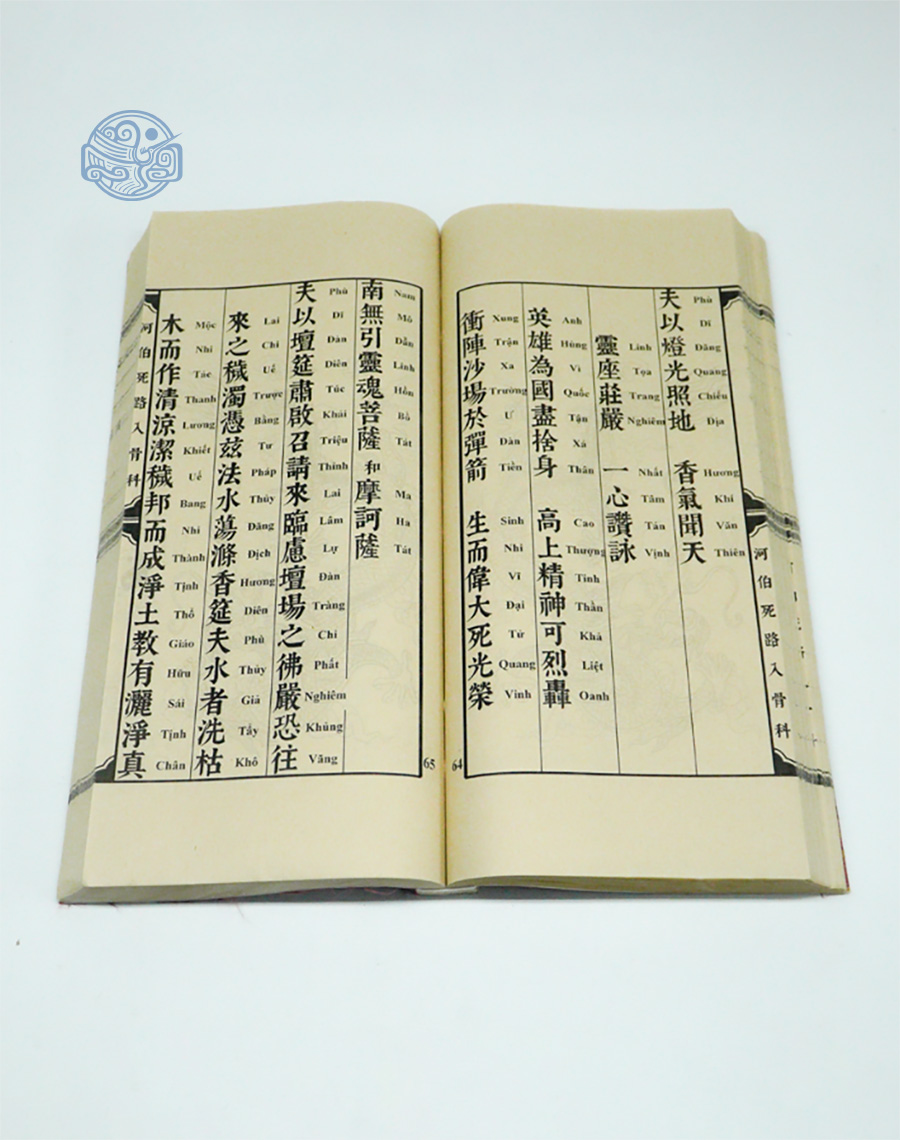 夫以燈光照地 香氣聞天
Phù Dĩ Đăng Quang Chiếu Địa Hương Khí Văn Thiên
靈座莊嚴 一心讚詠
Linh Tọa Trang Nghiêm Nhất Tâm Tán Vịnh
英雄為國盡捨身 高上精神可烈轟
Anh Hùng Vì Quốc Tận Xá Thân Cao Thượng Tinh Thần Khả Liệt Oanh
衝陣沙場於彈箭 生而偉大死光榮
Xung Trận Xa Trường Ư Đàn Tiền Sinh Nhi Vĩ Đại Tử Quang Vinh
河伯死路入骨科
64
南無引靈魂菩薩和摩訶薩
Nam Mô Dẫn Linh Hồn Bồ Tát Ma Ha Tát
夫以壇筵肅啟召請來臨慮壇場之彿嚴恐往
Phù Dĩ Đàn Diên Túc Khải Triệu Thỉnh Lai Lâm Lự Đàn Tràng Chi Phất Nghiêm Khủng Vãng
來之穢濁憑茲法水蕩滌香筵夫水者洗枯
Lai Chi Uế Trược Bằng Tư Pháp Thủy Đãng Địch Hương Diên Phù Thủy Giả Tẩy Khô
木而作清涼潔穢邦而成淨土教有灑淨真
Mộc Nhi Tác Thanh Lương Khiết Uế Bang Nhi Thành Tịnh Thổ Giáo Hữu Sái Tịnh Chân
河伯死路入骨科
65